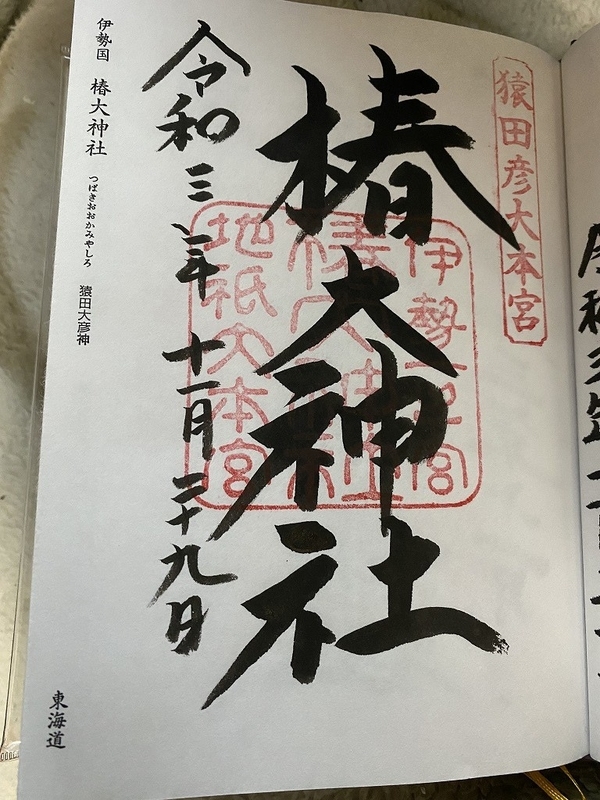 猿田彦大本宮
椿大神社
地祇大本宮
令和三年十一月二十九日
伊勢国 椿大神社 つばきおおかみやしろ 猿田大彦神
東海道